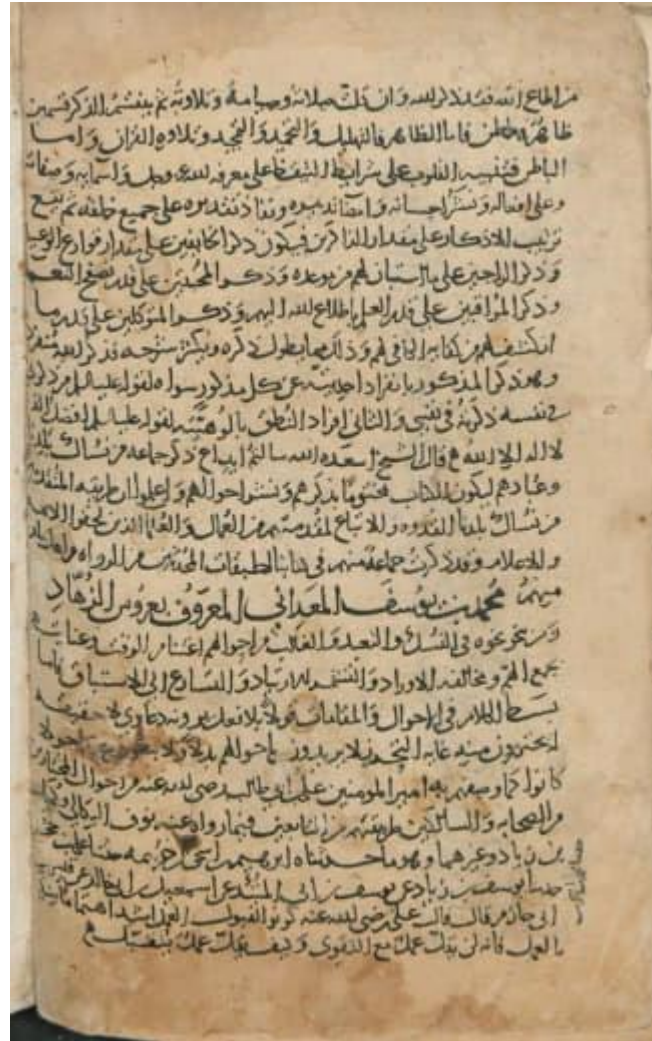 من اطاع الله فقد ذكر الله وان قلت صلاته وصيامه وتلاوته ثم ينقسم الذكر قسمين
ظاهر وباطن فاما الظاهر فالتهليل والتحميد والتمجيد وتلاوة القران واما
الباطن فتنبيه القلوب على شرايط التيقظ على معرفة الله عز وجل واسمايه وصفاته
وعلى افعاله ونشر احسانه وامضا تدبيره ونفاذ تقديره على جميع خلقه ثم يقع
ترتيب الاذكار على مقدار الذاكرين فيكون ذكر الخايفين على مقدار قوارع الوعيد
وذكر الراجين على ما استبان لهم من موعده وذكر المخبتين على قدر تصفح النعم
وذكر المراقبين على قدر العلم باطلاع الله اليهم وذكر المتوكلين على قدر ما
انكشف لهم من كفاية الكافي لهم وذلك مما يطول ذكره ويكثر شرحه فذكر الله منفرد
وهو ذكر المذكور بانفراد احديته عن كل مذكور سواه لقوله عليه السلم من ذكرني
في نفسه ذكرته في نفسي والثاني افراد النطق بالوهيته لقوله عليه السلم افضل الذكر
لا اله الا الله قال الشيخ اسعده الله سالتم ايداع ذكر جماعة من نساك بلدنا
وعبادهم ليكون الكتاب مختوما بذكرهم ونشر احوالهم واعلموا ان طريقة المتقدمين
من نساك بلدنا القدوة والاتباع لمتقدميهم من العمال والعلما الذين لحقوا الايمة
والاعلام وقد ذكرت جماعة منهم في كتاب الطبقات المحدثين من الرواة
منهم محمد بن يوسف المعداني المعروف بعروس الزهاد
ومن نحا نحوه في النسك والتعبد والغالب من احوالهم اغتنام الوقت وعنايته
بجمع الهم ومخالفة الاوراد والتشمر للارتياد والتسارع الى الاستباق فاما
بسط الكلام في الاحوال والمقامات قولا بلا فعل يرونه دعاوى لا حقيقة
يحترزون منه غاية التحرز لا يريدون باحوالهم بدلا ولا
كانوا كما وصفهم به امير المومنين علي بن ابي طالب رضي الله عنه من احوال المختارين
من الصحابة والسالكين طريقتهم من التابعين فيما رواه عنه نوف البكالي وكميل
بن زياد وغيرهما وهو ما حدثناه ابرهيم بن اسحق بن خزيمة حدثنا علي بن حجر
حدثنا يوسف بن زياد عن يوسف بن ابي المتئد عن اسمعيل بن ابي خالد عن قيس بن
ابي حازم قال قال علي رضي الله عنه كونوا لقبول العمل اشد اهتماما
بالعمل فانه لن يقل عمل مع التقوى وكيف يقل عمل يتقبل